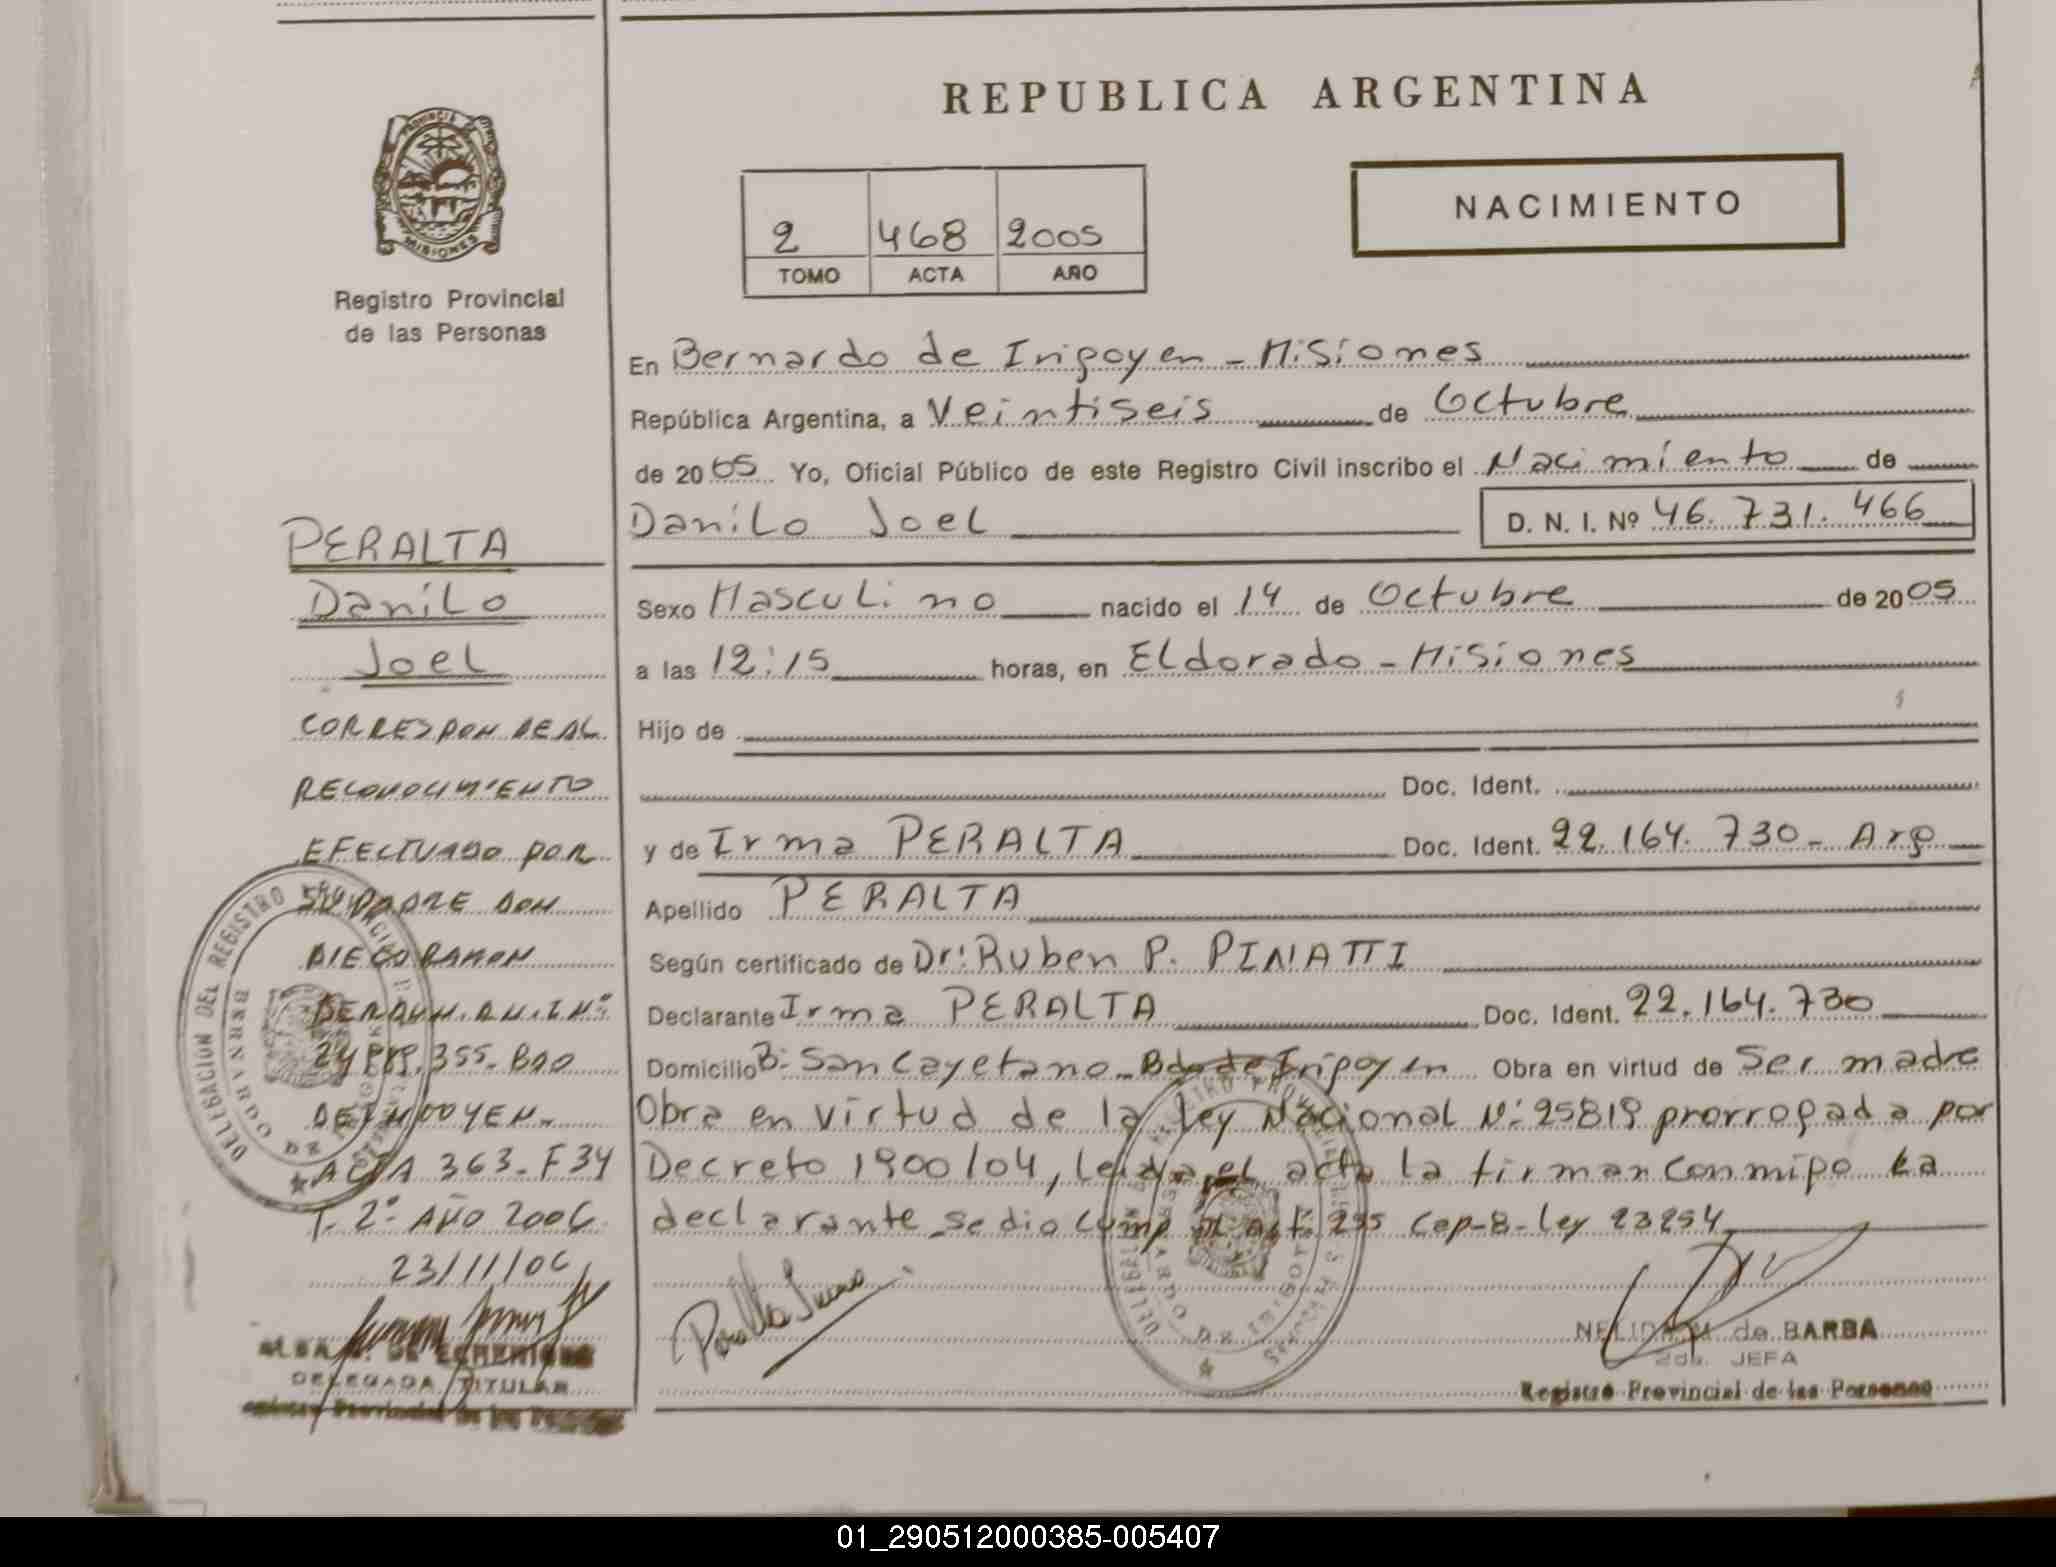 REPUBLICA ARGENTINA
PROVINCIA DE
MISIONES
Registro Provincial
de las Personas
2 468 2005
TOMO ACTA AÑO
NACIMIENTO
En Bernardo de Irigoyen - Misiones
República Argentina, a Veintiseis de Octubre
de 2005 Yo, Oficial Público de este Registro Civil inscribo el Nacimiento de
Danilo Joel D. N. I. Nº 46.731.466
Sexo Masculino nacido el 14 de Octubre de 2005
a las 12:15 horas, en Eldorado - Misiones
Hijo de
Doc. Ident.
y de Irma PERALTA Doc. Ident. 22.164.730 - Arg
Apellido PERALTA
Según certificado de Dr: Ruben P. PINATTI
Declarante Irma PERALTA Doc. Ident. 22.164.730
Domicilio B: San Cayetano - Bdo de Irigoyen Obra en virtud de Ser madre
Obra en virtud de la Ley Nacional N: 25819 prorrogada por
Decreto 1900/04, leida el acta la firman conmigo la
declarante se dio cump al art. 255 Cap-8-Ley 23254
Peralta Irma
NELIDA M. de BARBA
2da. JEFA
Registro Provincial de las Personas
PERALTA
Danilo
Joel
CORRESPONDE AL
RECONOCIMIENTO
EFECTUADO POR
SU PADRE DON
DIEGO RAMON
355. BDO
DE IRIGOYEN.
ACTA 363. F 34
T. 2º AÑO 2006
23/11/06
DELEGADA TITULAR
Provincial de las Personas
DELEGACION DEL REGISTRO PROVINCIAL
01_290512000385-005407